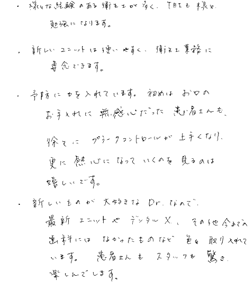 ・様々な経験のある衛生士が多く、とても
勉強になります。
・新しいユニットは使いやすく、衛生士業務に
専念できます。
・予防に力を入れています。初めはお口の
お手入れに無関心だった患者さんも、
徐々にプラークコントロールが上手くなり、
更に熱心になっていくのを見るのは
嬉しいです。
・新しいものが大好きなDr.なので、
最新ユニットやデンタルX、その他今までの
歯科にはなかったものなど色々取り入れて
います。患者さんもスタッフも驚き、
楽しんでします。